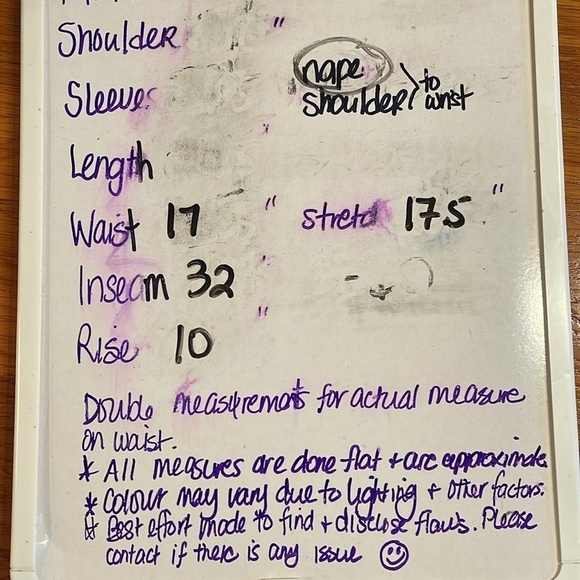 Shoulder "
nape
Sleeves shoulder > to wrist
Length "
Waist 17 " stretch 17.5 "
Inseam 32 "
Rise 10 "
Double measurements for actual measure
on waist.
* All measures are done flat + are approximate
* Colour may vary due to lighting + other factors.
* Best effort made to find + disclose flaws. Please
contact if there is any issue ☺